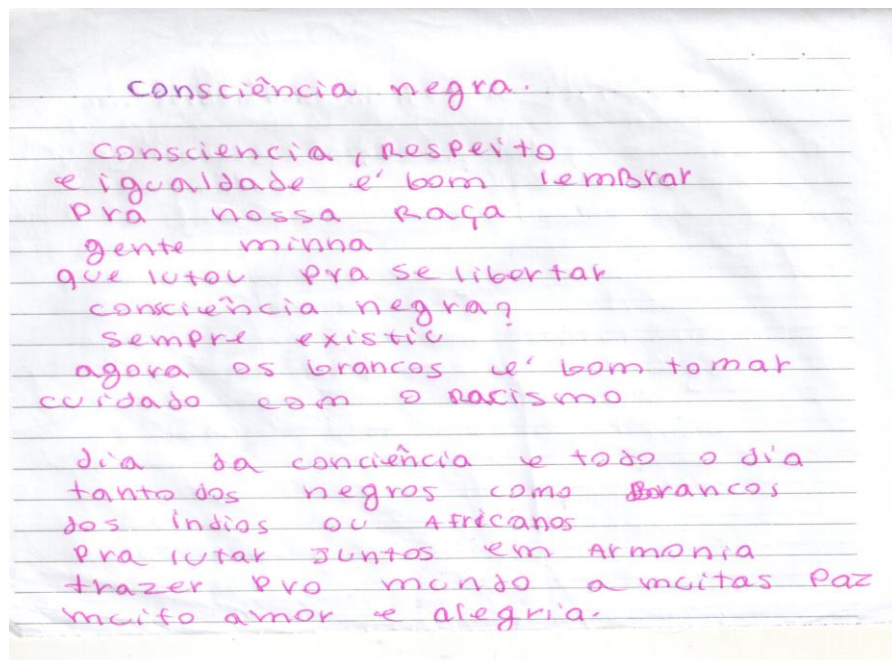 consciência negra.
consciencia, Respeito
e igualdade é bom lemBrar
pra nossa Raça
gente minna
que lutou pra se libertar
consciência negra?
sempre existiu
agora os brancos é bom tomar
cuidado com o racismo
dia da conciência e todo o dia
tanto dos negros como Brancos
dos índios ou Africanos
pra lutar Juntos em Armonia
trazer pro mundo a muitas paz
muito amor e alegria.